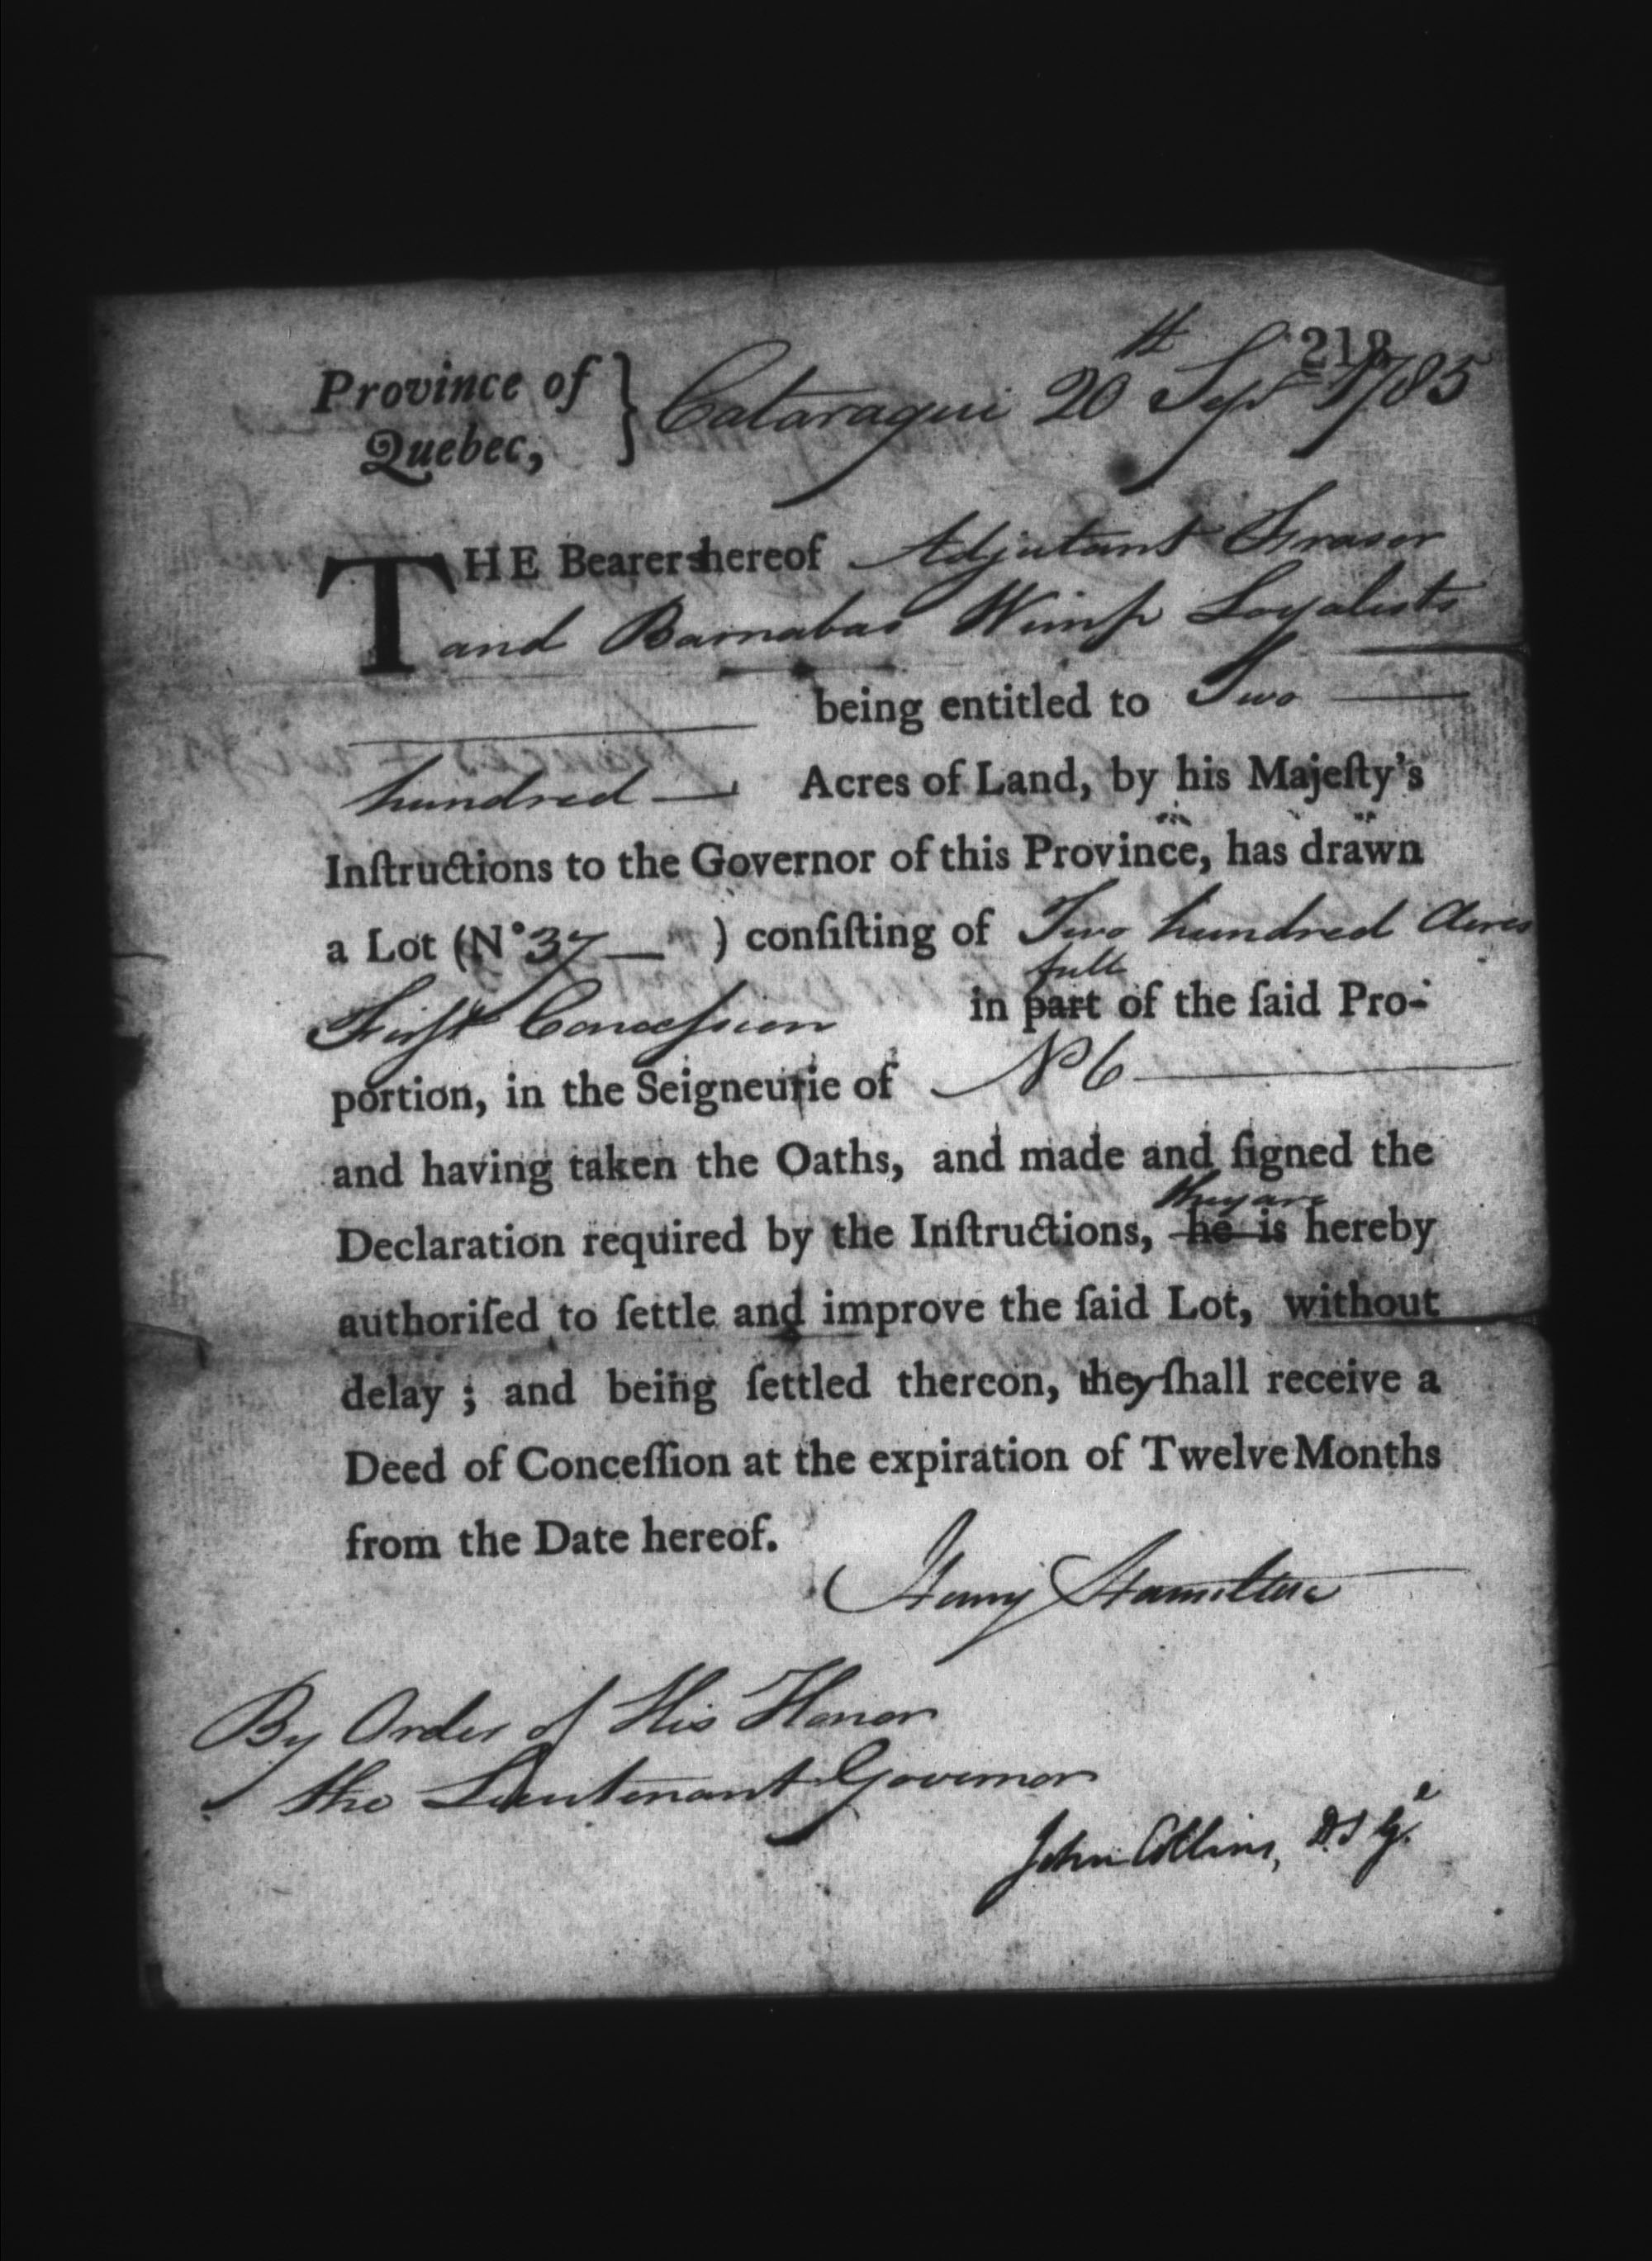 218
Province of } Cataraqui 20th Sepr 1785
Quebec,
THE Bearers hereof Adjutant Fraser
and Barnabas Wimp Loyalists
being entitled to Two
hundred — Acres of Land, by his Majeſty's
Inſtructions to the Governor of this Province, has drawn
a Lot (N° 37 — ) conſiſting of Two hundred Acres
full
Firſt Conceſsion in part of the ſaid Pro-
portion, in the Seigneurie of N° 6
and having taken the Oaths, and made and ſigned the
they are
Declaration required by the Inſtructions, he is hereby
authoriſed to ſettle and improve the ſaid Lot, without
delay ; and being ſettled thereon, they ſhall receive a
Deed of Conceſſion at the expiration of Twelve Months
from the Date hereof.
Henry Hamilton
By Order of His Honor
the Lieutenant Governor
John Collins, D.S.G.